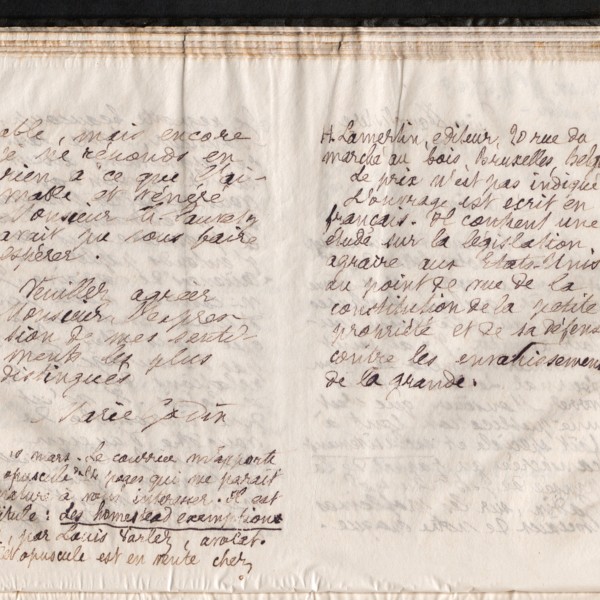 able, mais encore
je ne réponds en
rien à ce que l'ai-
mable et vénéré
Monsieur
avait pu vous faire
espérer.
Veuillez agréer
Monsieur l'expres-
sion de mes senti-
ments les plus
distingués
Marie Godin
10 mars. Le courrier m'apporte
opuscule de pages qui me paraît
nature à vous intéresser. Il est
titulé : Les homestead exemptions
, par Louis Varlez, avocat.
et opuscule est en vente chez
H. Lamertin, editeur, 20 rue du
marché au bois Bruxelles Belg
Le prix n'est pas indiqué
L'ouvrage est ecrit en
français. Il contient une
étude sur la législation
agraire aux Etats-Unis
au point de vue de la
constitution de la petite
propriété et de sa défense
contre les envahissements
de la grande.